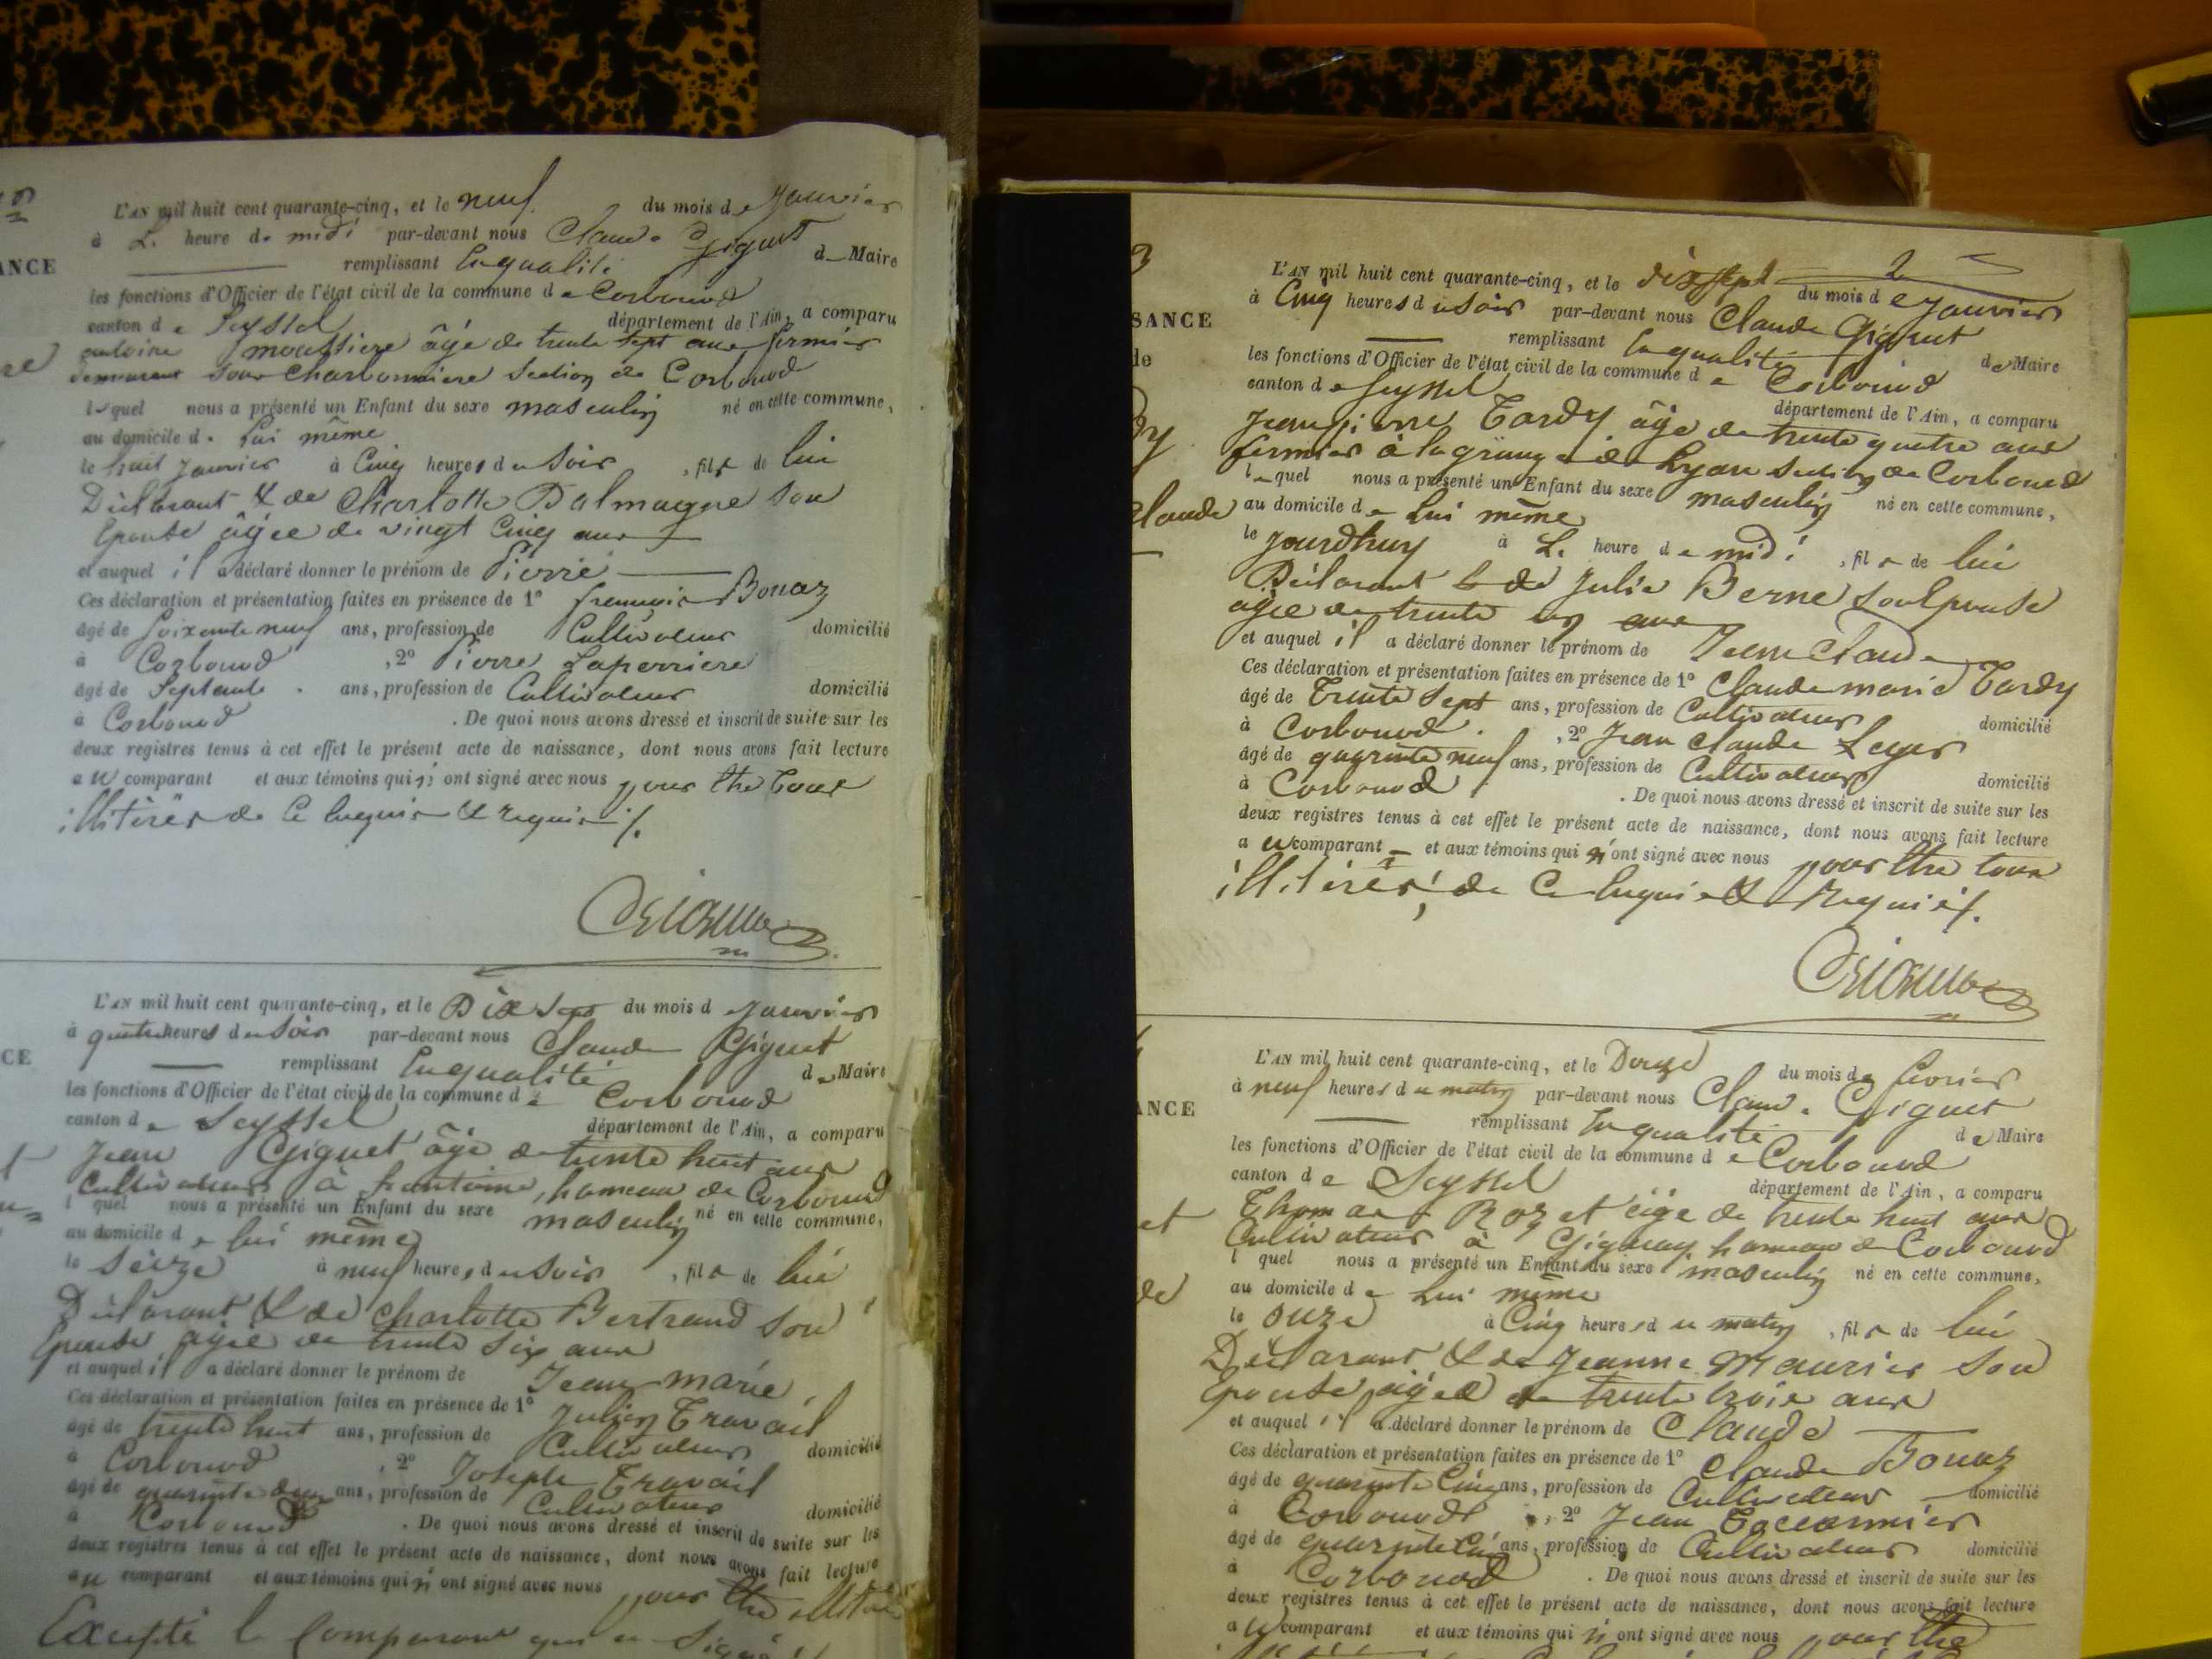 ANCE
L'AN mil huit cent quarante-cinq, et le neuf du mois de Janvier
à L. heure de midi par-devant nous Claude Giguet
remplissant la qualité de Maire
les fonctions d'Officier de l'état civil de la commune de Corbonod
canton de Seyssel département de l'Ain, a comparu
antoine moussiere âgé de trente sept ans fermier
demeurant sous charbonniere Section de Corbonod
lequel nous a présenté un Enfant du sexe masculin né en cette commune,
au domicile de Lui même
le huit Janvier à Cinq heures du Soir, fils de lui
Déclarant & de Charlotte Dalmagne son
Epouse âgée de vingt Cinq ans
et auquel il a déclaré donner le prénom de Pierre
Ces déclaration et présentation faites en présence de 1° françois Bonaz
âgé de Soixante neuf ans, profession de Cultivateur domicilié
à Corbonod, 2° Pierre Laperriere
âgé de Septante ans, profession de Cultivateur domicilié
à Corbonod. De quoi nous avons dressé et inscrit de suite sur les
deux registres tenus à cet effet le présent acte de naissance, dont nous avons fait lecture
au comparant et aux témoins qui n'ont signé avec nous pour être tous
illitérés de ce enquis & requis /.
CE
L'AN mil huit cent quarante-cinq, et le Dix Sept du mois de Janvier
à quatre heures du Soir par-devant nous Claude Giguet
remplissant la qualité de Maire
les fonctions d'Officier de l'état civil de la commune de Corbonod
canton de Seyssel département de l'Ain, a comparu
Jean Giguet âgé de trente huit ans
Cultivateur à hameau de Corbonod
lquel nous a présenté un Enfant du sexe masculin né en cette commune,
au domicile de lui même
le Seize à neuf heures du Soir, fils de lui
Déclarant & de Charlotte Bertrand son
Epouse agée de trente Six ans
et auquel il a déclaré donner le prénom de Jean marie
Ces déclaration et présentation faites en présence de 1° Julien Travail
âgé de trente huit ans, profession de Cultivateur domicilié
à Corbonod, 2° Joseph Travail
âgé de quarante deux ans, profession de Cultivateur domicilié
à Corbonod. De quoi nous avons dressé et inscrit de suite sur les
deux registres tenus à cet effet le présent acte de naissance, dont nous avons fait lecture
au comparant et aux témoins qui n'ont signé avec nous pour être
Excepté le Comparant qui a Signé
3
SANCE
de
Claude
2
L'AN mil huit cent quarante-cinq, et le dix sept du mois de Janvier
à Cinq heures du Soir par-devant nous Claude Giguet
remplissant la qualité de Maire
les fonctions d'Officier de l'état civil de la commune de Corbonod
canton de Seyssel département de l'Ain, a comparu
Jeanpierre Tardy âgé de trente quatre ans
fermier à la grange de Lyon Section de Corbonod
lequel nous a présenté un Enfant du sexe masculin né en cette commune,
au domicile de Lui même
le Jourdhuy à L. heure de midi, fils de lui
Déclarant & de Julie Berne son Epouse
agée de trente un ans
et auquel il a déclaré donner le prénom de Jean Claude
Ces déclaration et présentation faites en présence de 1° Claude marie Tardy
âgé de Trente Sept ans, profession de Cultivateur domicilié
à Corbonod, 2° Jean Claude
âgé de quarante neuf ans, profession de Cultivateur domicilié
à Corbonod. De quoi nous avons dressé et inscrit de suite sur les
deux registres tenus à cet effet le présent acte de naissance, dont nous avons fait lecture
au comparant et aux témoins qui n'ont signé avec nous pour être tous
illitérés de ce enquis & Requis /.
ANCE
L'AN mil huit cent quarante-cinq, et le Douze du mois de fevrier
à neuf heures du matin par-devant nous Claude Giguet
remplissant la qualité de Maire
les fonctions d'Officier de l'état civil de la commune de Corbonod
canton de Seyssel département de l'Ain, a comparu
Thomas Rozet âgé de trente huit ans
Cultivateur à Gignay hameau de Corbonod
lquel nous a présenté un Enfant du sexe masculin né en cette commune,
au domicile de Lui même
le onze à Cinq heures du matin, fils de lui
Déclarant & de Jeanne Maurier son
Epouse agée de trente trois ans
et auquel il a déclaré donner le prénom de Claude
Ces déclaration et présentation faites en présence de 1° Claude Bonaz
âgé de quarante Cinq ans, profession de Cultivateur domicilié
à Corbonod, 2° Jean
âgé de quarante Cinq ans, profession de Cultivateur domicilié
à Corbonod. De quoi nous avons dressé et inscrit de suite sur les
deux registres tenus à cet effet le présent acte de naissance, dont nous avons fait lecture
au comparant et aux témoins qui n'ont signé avec nous pour être